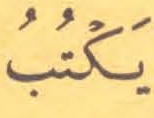 يَكْتُبُ